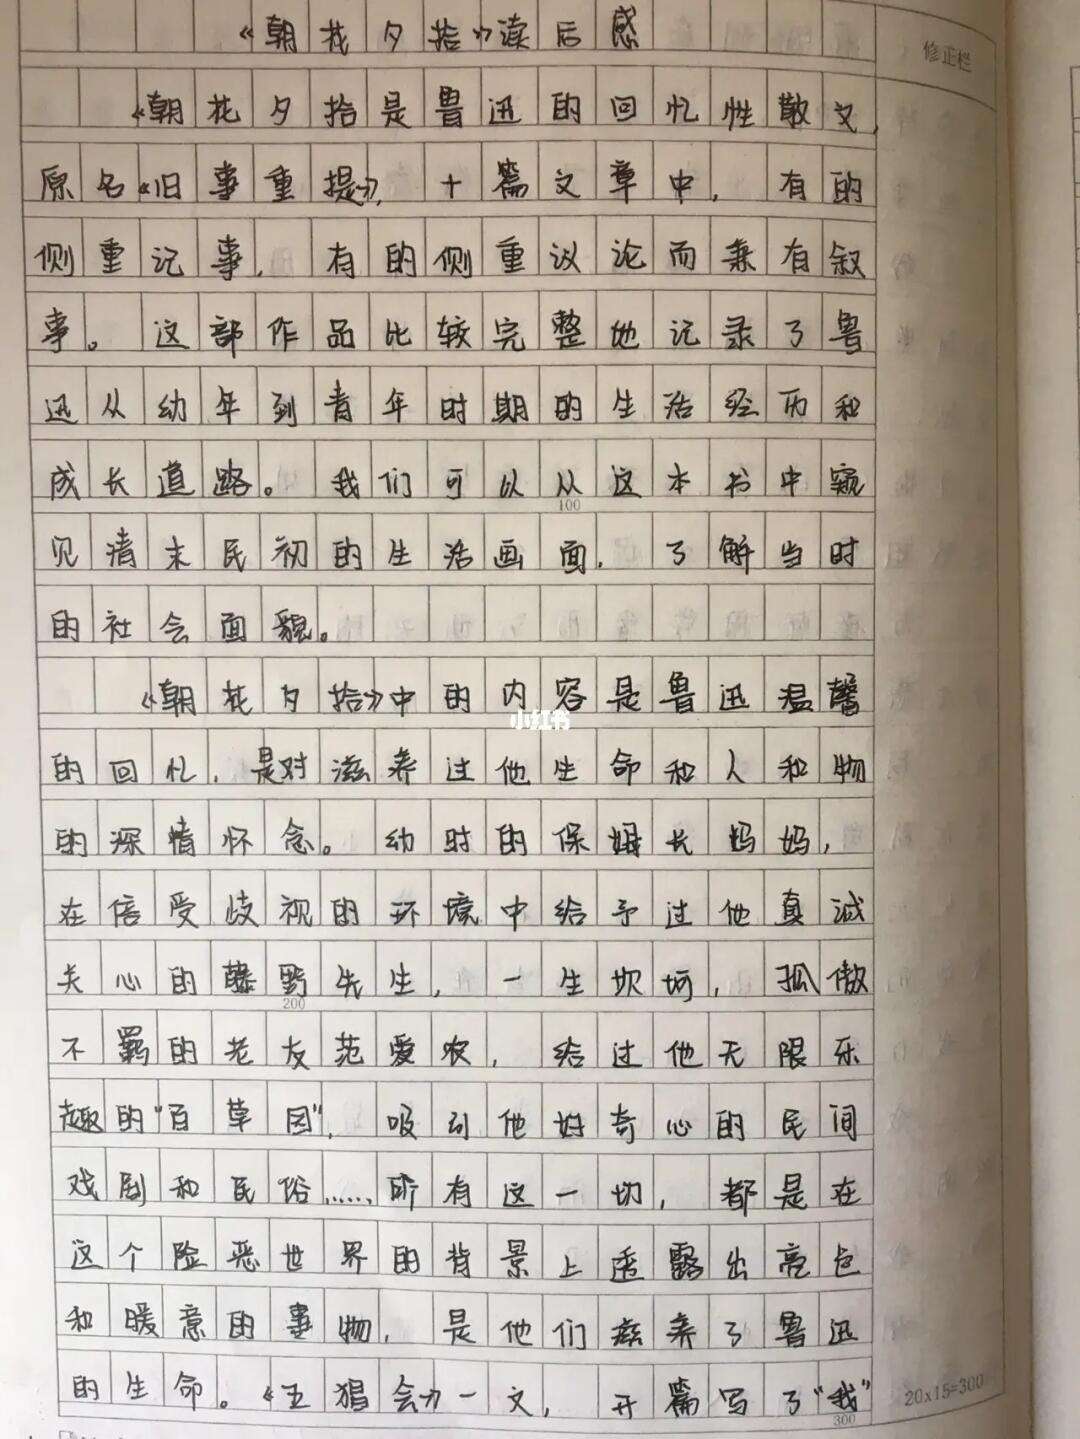 《朝花夕拾》读后感
修正栏
《朝花夕拾是鲁迅的回忆性散文,
原名《旧事重提》，十篇文章中，有的
侧重记事，有的侧重议论而兼有叙
事。这部作品比较完整地记录了鲁
迅从幼年到青年时期的生活经历和
成长道路。我们可以从这本书中窥
100
见清末民初的生活画面，了解当时
的社会面貌。
《朝花夕拾》中的内容是鲁迅温馨
小红书
的回忆，是对滋养过他生命和人和物
的深情怀念。幼时的保姆长妈妈，
在倍受歧视的环境中给予过他真诚
关心的藤野先生，一生坎坷，孤傲
200
不羁的老友范爱农，给过他无限乐
趣的“百草园”，吸引他好奇心的民间
戏剧和民俗……所有这一切，都是在
这个险恶世界的背景上透露出亮色
和暖意的事物，是他们滋养了鲁迅
的生命。《五猖会》一文，开篇写了“我”
300
20x15=300